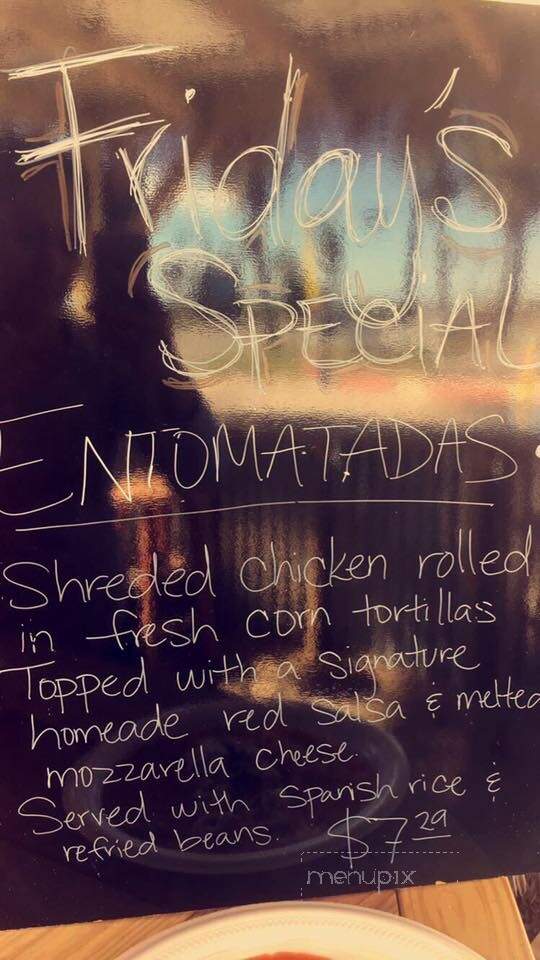 Friday's
SPECIAL
ENTOMATADAS
Shreded chicken rolled
in fresh corn tortillas
Topped with a signature
homeade red salsa & melted
mozzarella cheese.
Served with spanish rice &
refried beans. $7.29
menupix